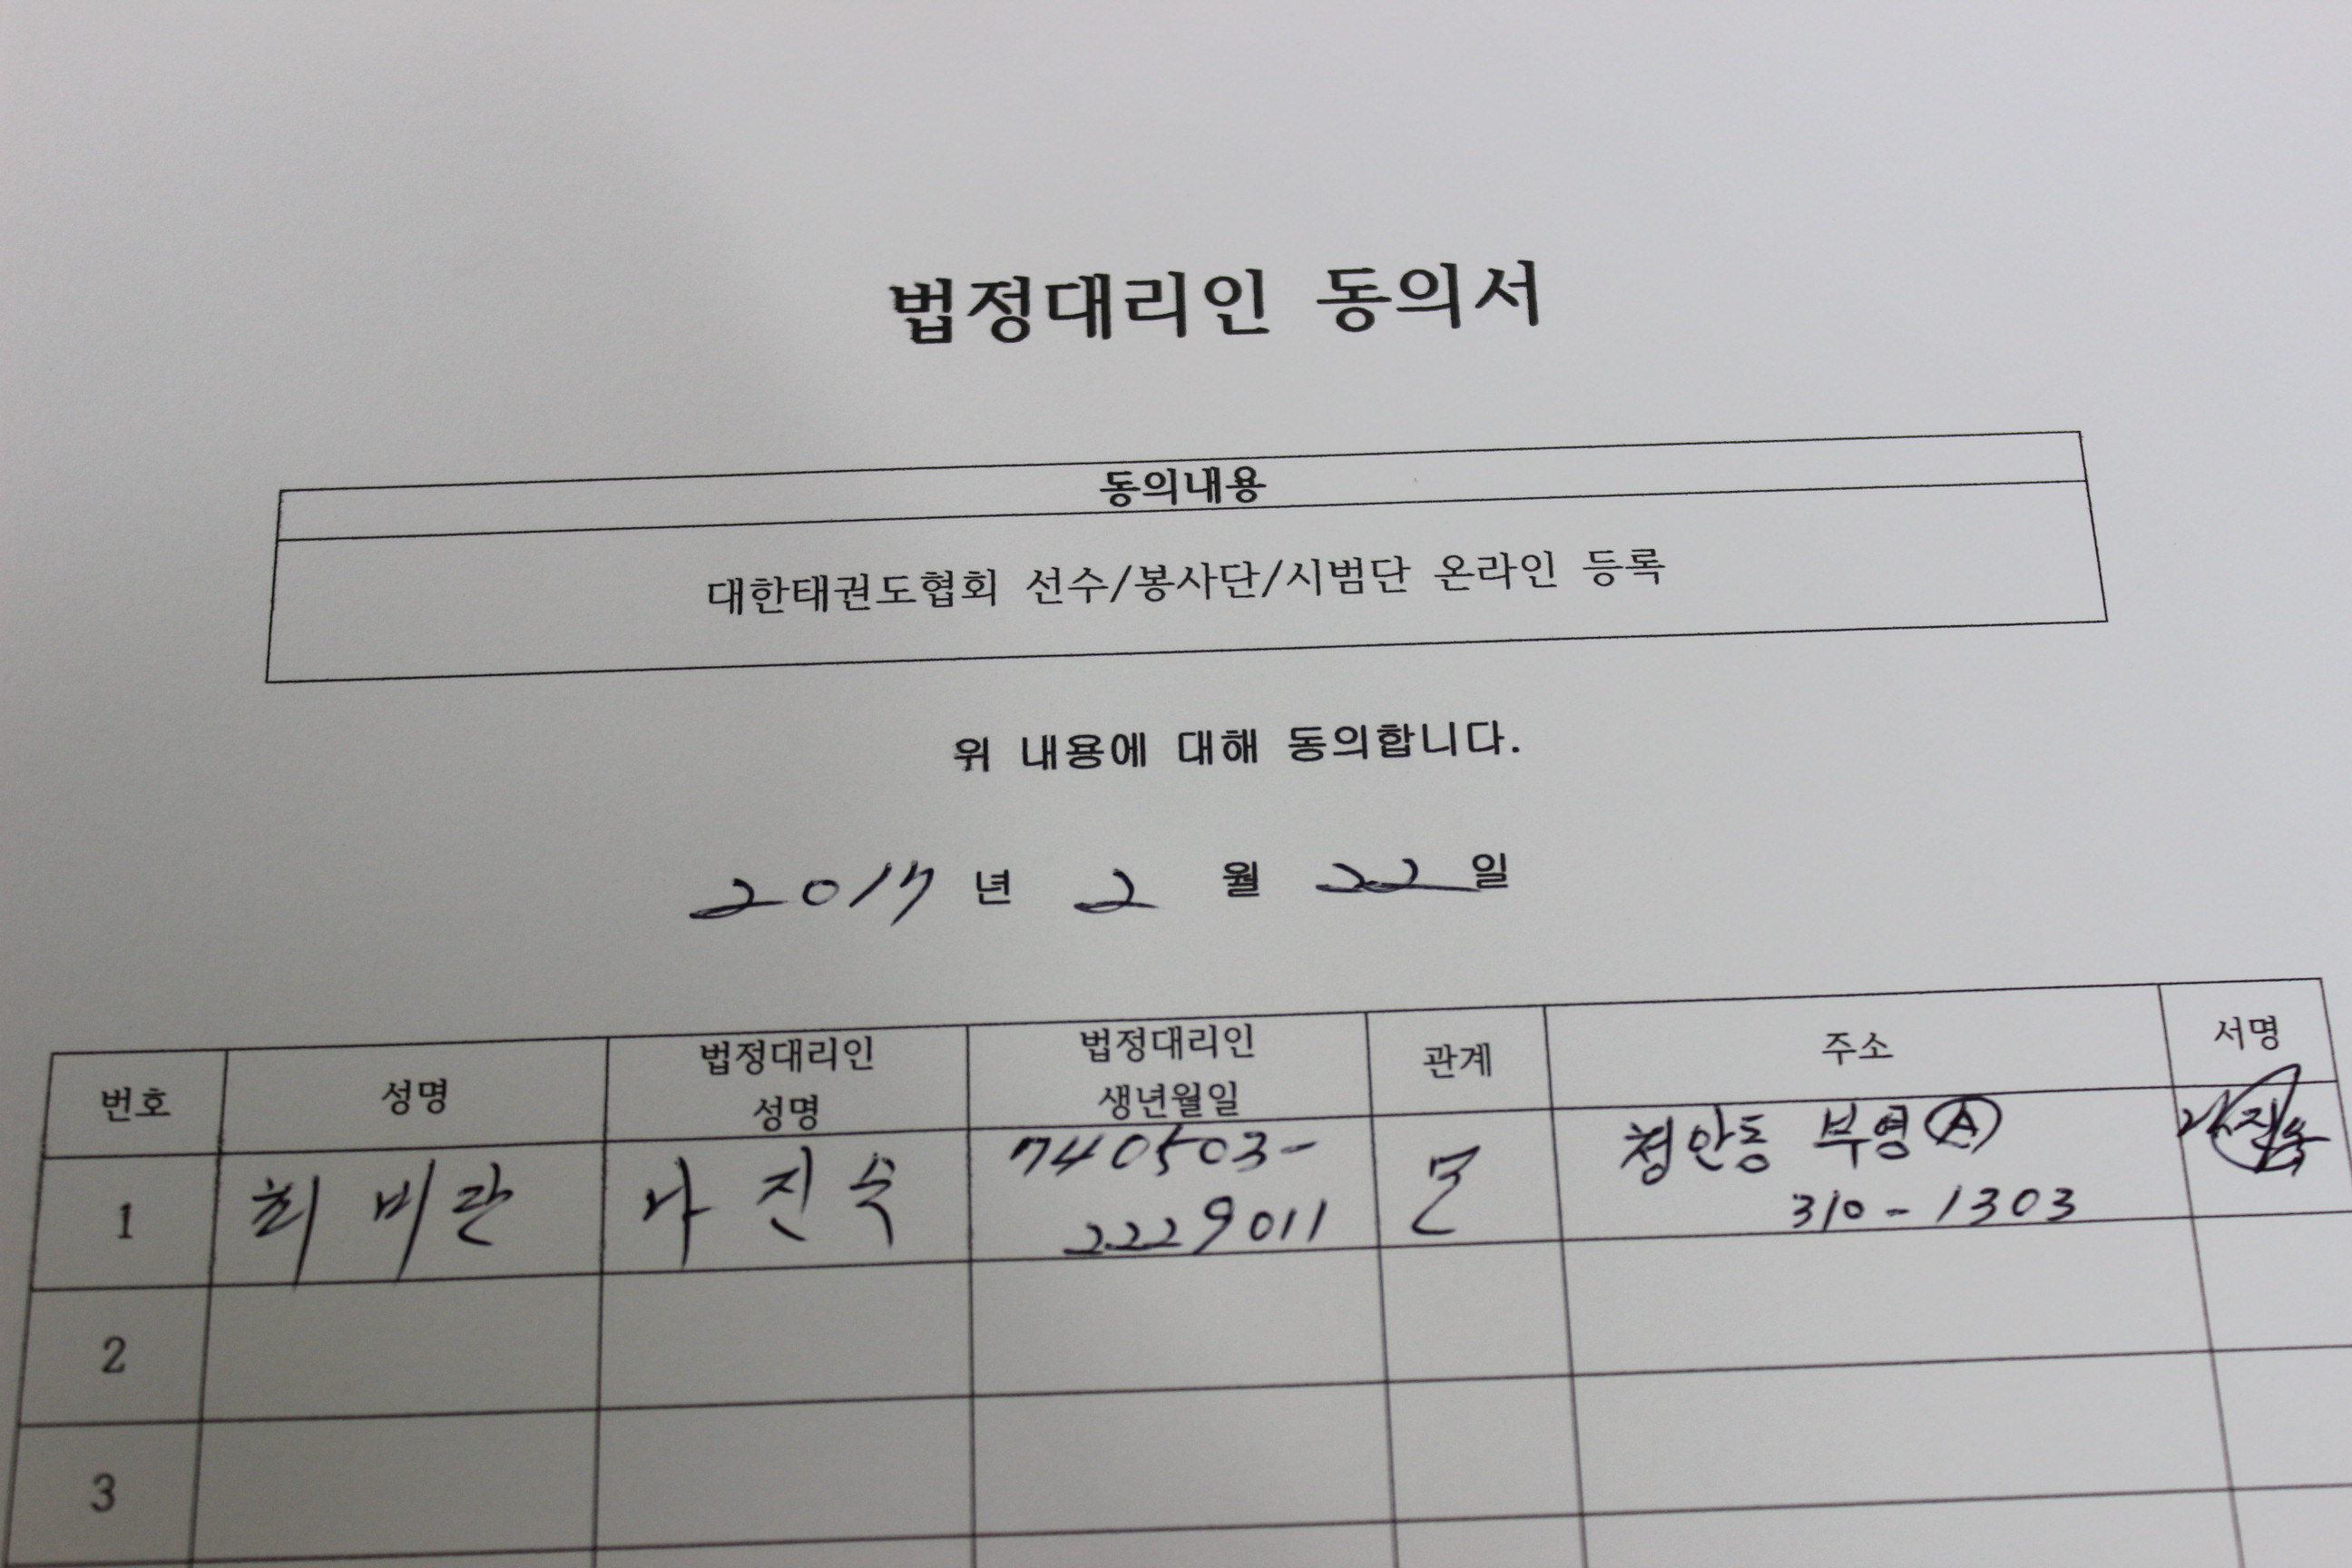 법정대리인 동의서
동의내용
대한태권도협회 선수/봉사단/시범단 온라인 등록
위 내용에 대해 동의합니다.
2017 년 2 월 22 일
번호 성명 법정대리인 성명 법정대리인 생년월일 관계 주소 서명
1 최 비란 나 진숙 740503-2229011 모 청안동 부영 Ⓐ 310-1303 나진숙
2
3